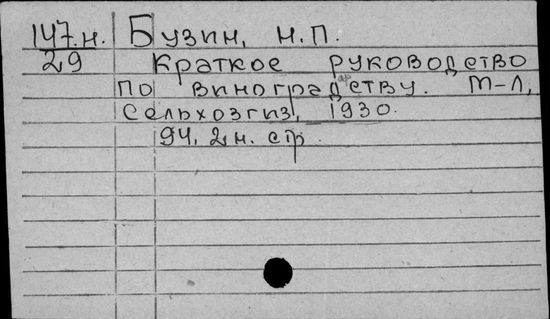 147.н. Бузин, Н.П.
29 Краткое руководство
по виноградарству. М-Л,
Сельхозгиз, 1930.
94, 2 н. стр.